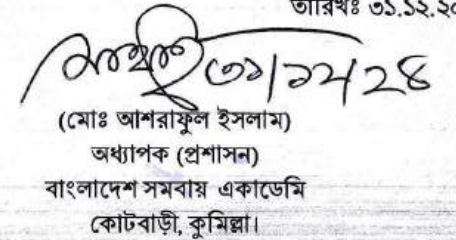 তারিখঃ ৩১.১২.২০
৩১/১২/২৪
(মোঃ আশরাফুল ইসলাম)
অধ্যাপক (প্রশাসন)
বাংলাদেশ সমবায় একাডেমি
কোটবাড়ী, কুমিল্লা।